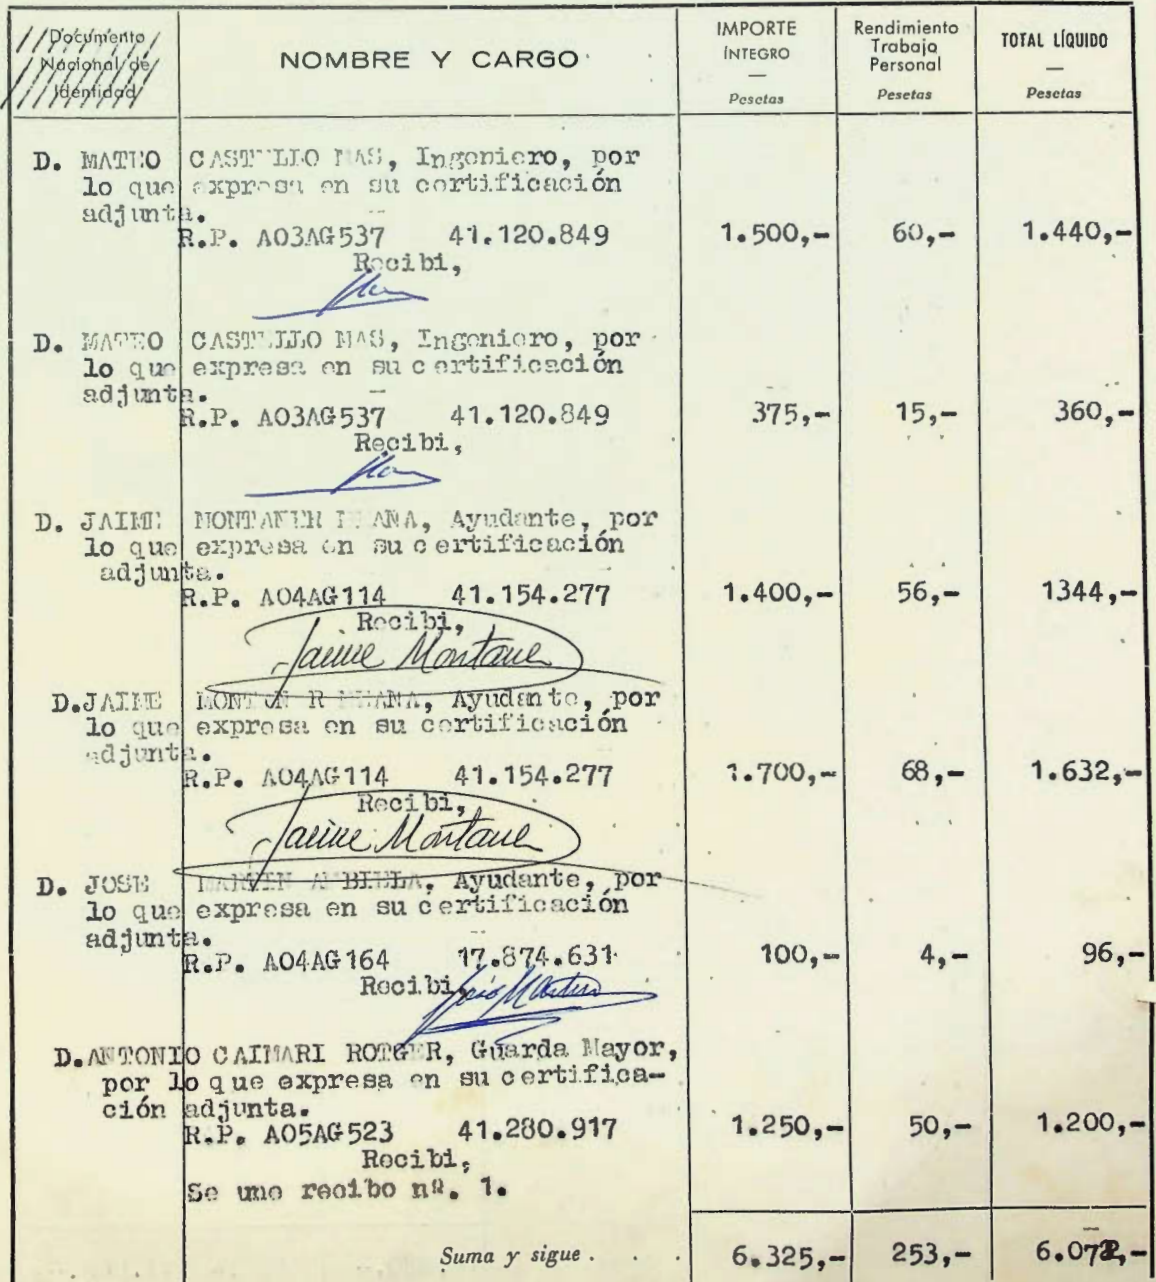 Documento
Nacional de
Identidad
NOMBRE Y CARGO
IMPORTE
ÍNTEGRO
—
Pesetas
Rendimiento
Trabajo
Personal
Pesetas
TOTAL LÍQUIDO
—
Pesetas
D. MATEO CASTELLO MAS, Ingeniero, por
lo que expresa en su certificación
adjunta.
R.P. A03AG537 41.120.849 1.500,- 60,- 1.440,-
Recibi,
D. MATEO CASTELLO MAS, Ingeniero, por
lo que expresa en su certificación
adjunta.
R.P. A03AG537 41.120.849 375,- 15,- 360,-
Recibi,
D. JAIME MONTANER Ayudante, por
lo que expresa en su certificación
adjunta.
R.P. A04AG114 41.154.277 1.400,- 56,- 1344,-
Recibi,
Jaime Montaner
D.JAIME MONTANER Ayudante, por
lo que expresa en su certificación
adjunta.
R.P. A04AG114 41.154.277 1.700,- 68,- 1.632,-
Recibi,
Jaime Montaner
D. JOSE MARTIN Ayudante, por
lo que expresa en su certificación
adjunta.
R.P. A04AG164 17.874.631 100,- 4,- 96,-
Recibi,
D.ANTONIO CAIMARI ROTGER, Guarda Mayor,
por lo que expresa en su certifica-
ción adjunta.
R.P. A05AG523 41.280.917 1.250,- 50,- 1.200,-
Recibi,
Se une recibo nº. 1.
Suma y sigue . . . 6.325,- 253,- 6.072,-